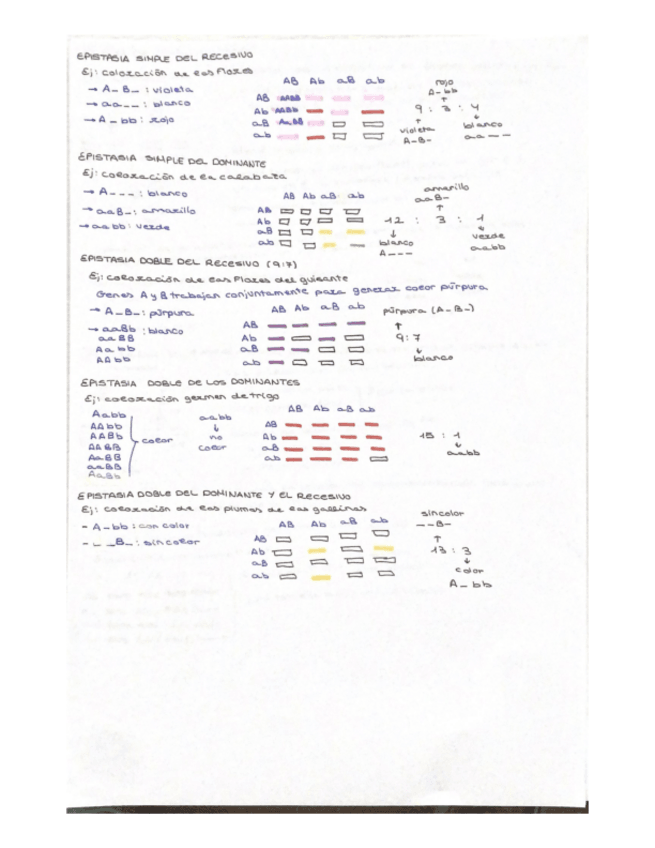 EPISTASIA SIMPLE DEL RECESIVO
Ej: coloración de las flores
→ A_B_ : violeta
→ aa__ : blanco
→ A_bb : rojo
AB Ab aB ab
AB AABB
Ab AABb
aB AaBB
ab
rojo
A-bb
↑
9 : 3 : 4
violeta
A-B-
blanco
aa--
EPISTASIA SIMPLE DEL DOMINANTE
Ej: coloración de la calabaza
→ A___ : blanco
→ aaB_ : amarillo
→ aabb : verde
AB Ab aB ab
AB
Ab
aB
ab
amarillo
aaB-
↑
12 : 3 : 1
blanco
A---
verde
aabb
EPISTASIA DOBLE DEL RECESIVO (9:7)
Ej: coloración de las flores del guisante
Genes A y B trabajan conjuntamente para generar color púrpura
→ A_B_ : púrpura
→ aaBb : blanco
aaBB
Aabb
AAbb
AB Ab aB ab
AB
Ab
aB
ab
púrpura (A-B-)
↑
9:7
↓
blanco
EPISTASIA DOBLE DE LOS DOMINANTES
Ej: coloración germen de trigo
Aabb
AAbb
AABb
AABB
AaBB
aaBB
AaBb
color
aabb
↓
no
color
AB Ab aB ab
AB
Ab
aB
ab
15 : 1
↓
aabb
EPISTASIA DOBLE DEL DOMINANTE Y EL RECESIVO
Ej: coloración de las plumas de las gallinas
- A-bb : con color
- _ _B_ : sin color
AB Ab aB ab
AB
Ab
aB
ab
sin color
--B-
↑
13 : 3
↓
color
A-bb